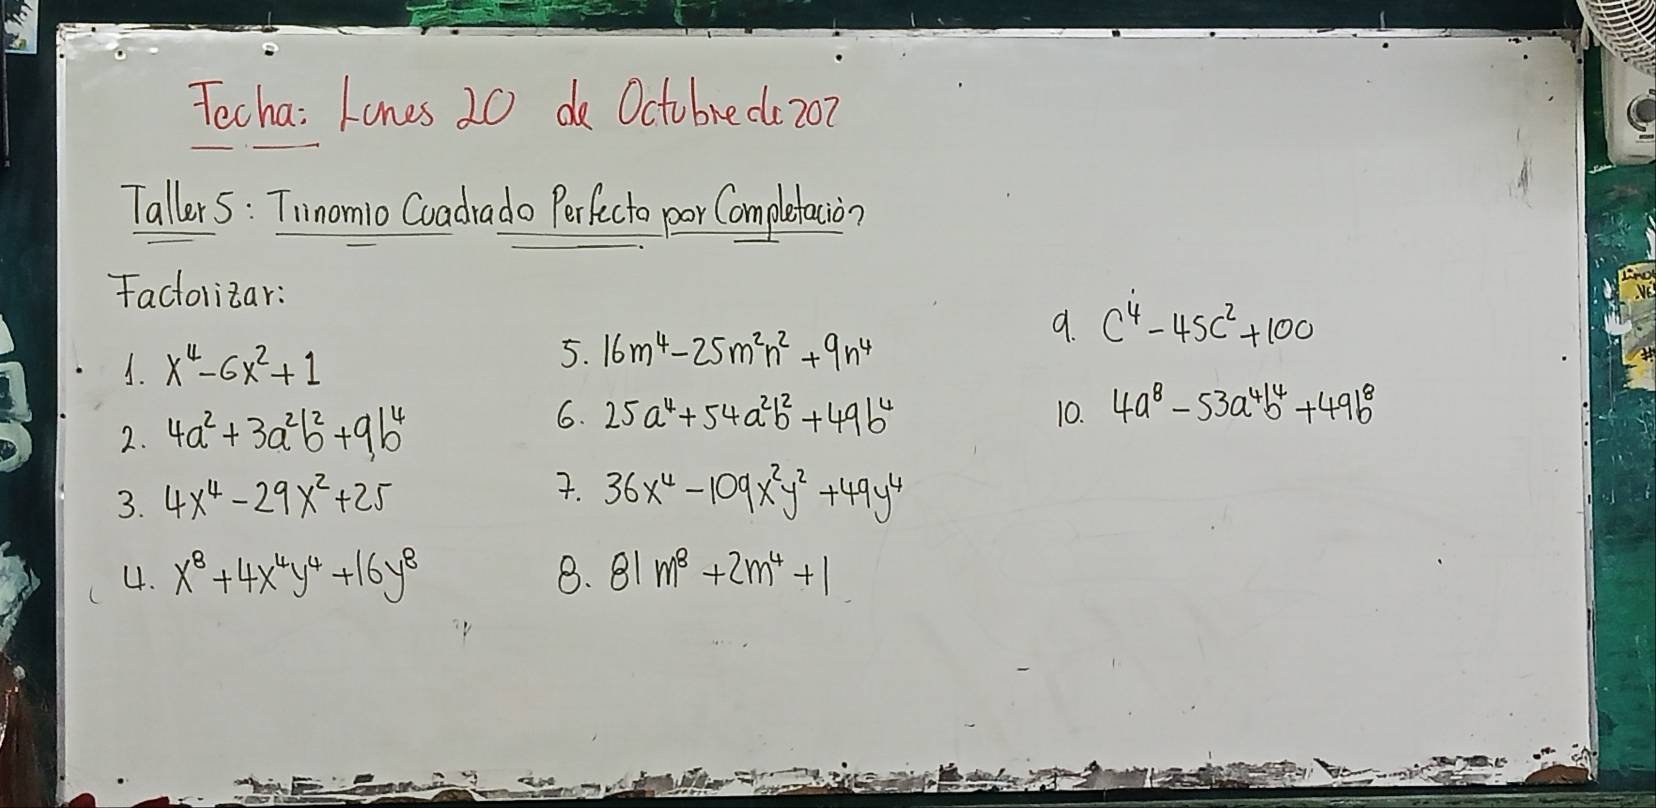 Fecha: Lunes 20 de Octubre de 202
Taller 5: Trinomio Cuadrado Perfecto por Completación
Factorizar:
1. x⁴-6x²+1
2. 4a²+3a²b²+9b⁴
3. 4x⁴-29x²+25
4. x⁸+4x⁴y⁴+16y⁸
5. 16m⁴-25m²n²+9n⁴
6. 25a⁴+54a²b²+49b⁴
7. 36x⁴-109x²y²+49y⁴
8. 81m⁸+2m⁴+1
9. C⁴-45C²+100
10. 4a⁸-53a⁴b⁴+49b⁸